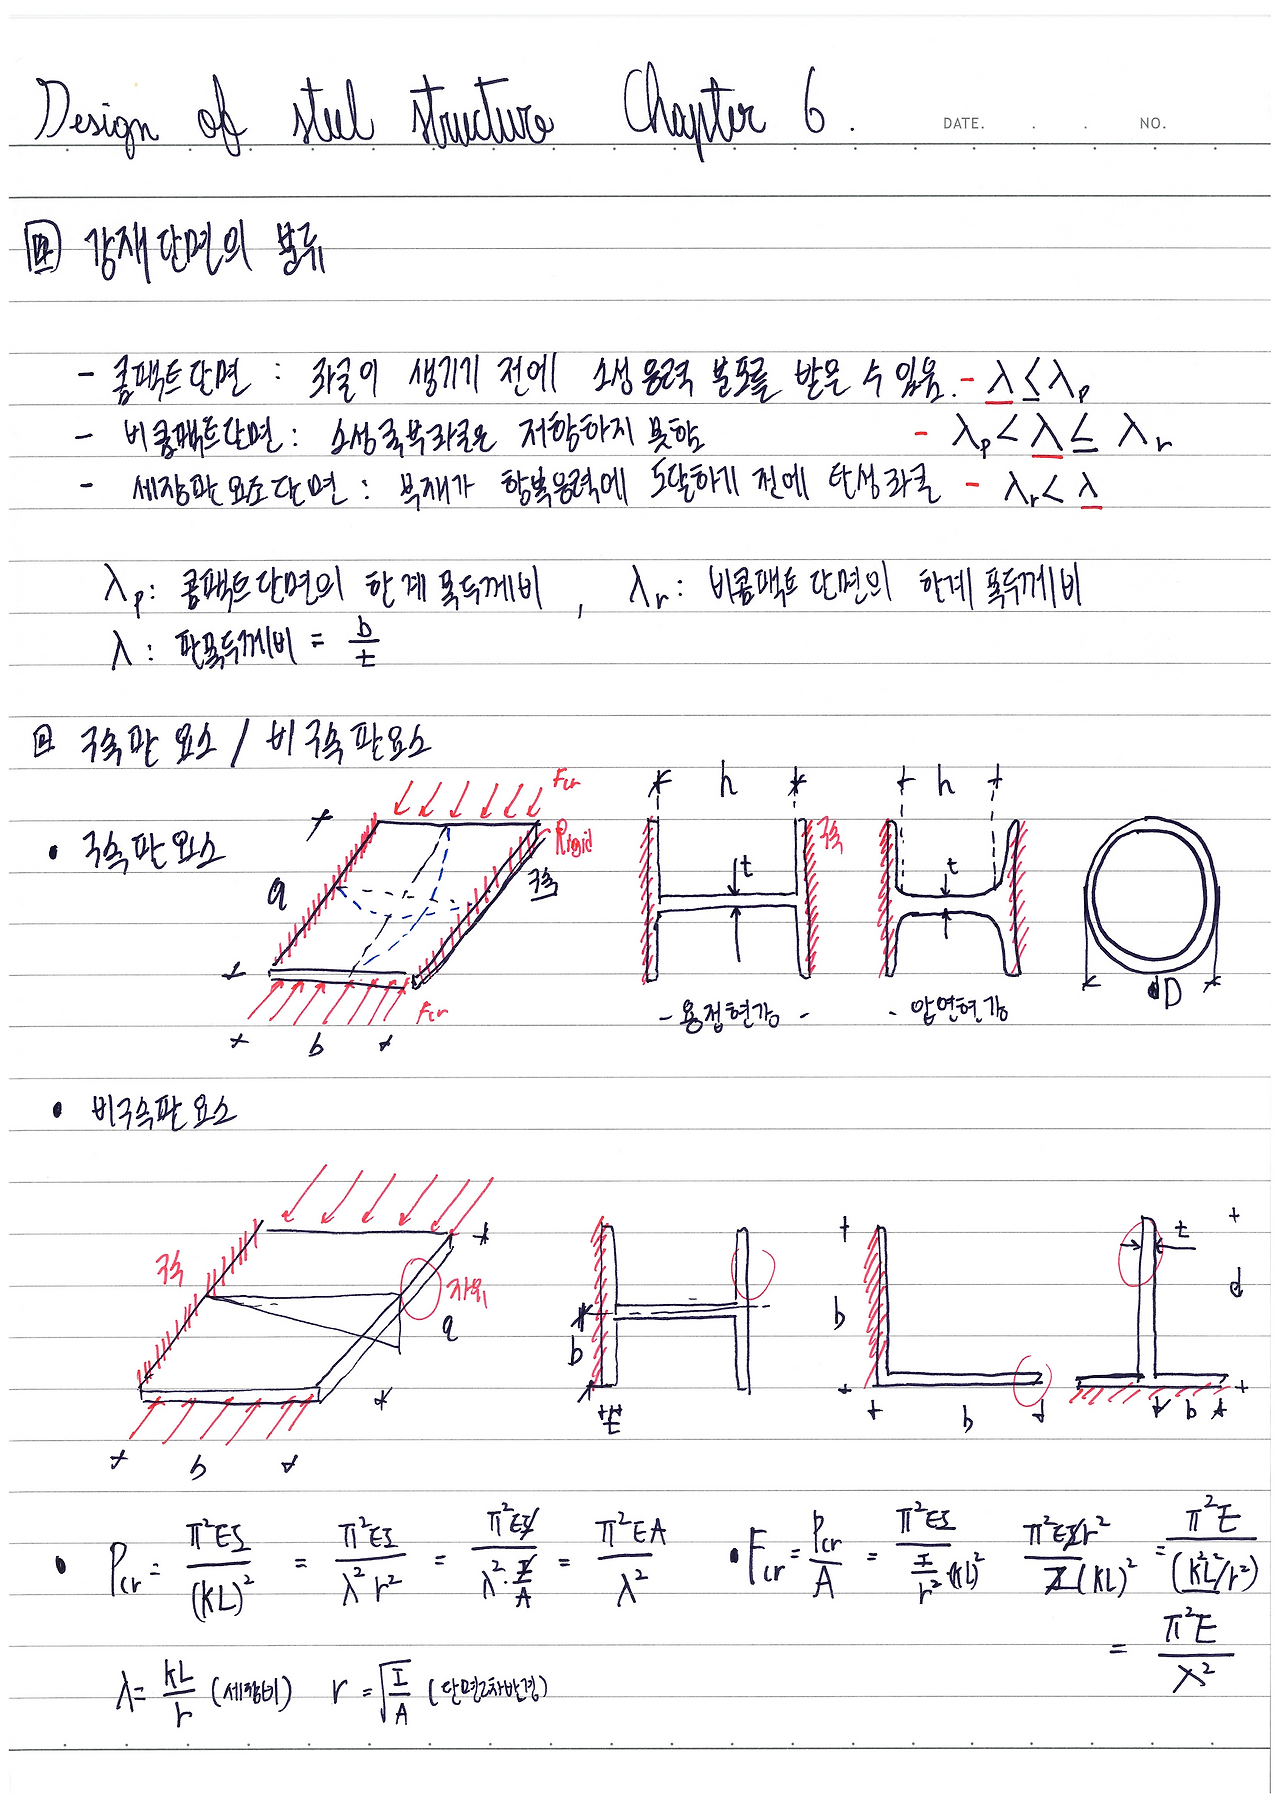 Design of steel structure Chapter 6.
DATE. . . NO.
강재단면의 분류
- 콤팩트단면 : 좌굴이 생기기 전에 소성응력 분포를 받을 수 있음. - λ ≤ λp
- 비콤팩트단면 : 소성국부좌굴은 저항하지 못함 - λp < λ ≤ λr
- 세장판요소단면 : 부재가 항복응력에 도달하기 전에 탄성좌굴 - λr < λ
λp : 콤팩트단면의 한계폭두께비, λr : 비콤팩트단면의 한계폭두께비
λ : 판폭두께비 = b/t
구속판요소 / 비구속판요소
• 구속판요소
Fcr
Rigid
구속
a
Fcr
b
h
t
구속
- 용접형강 -
h
t
- 압연형강
D
• 비구속판요소
구속
자유
a
b
b
t
b
b
t
d
b
• Pcr = π²EI/(KL)² = π²EI/λ²r² = π²EI/λ²·I/A = π²EA/λ²
• Fcr = Pcr/A = π²EI/(I/r²(KL)²) π²EIr²/I(KL)² = π²E/(K²L²/r²)
= π²E/λ²
λ = KL/r (세장비) r = √I/A (단면2차반경)